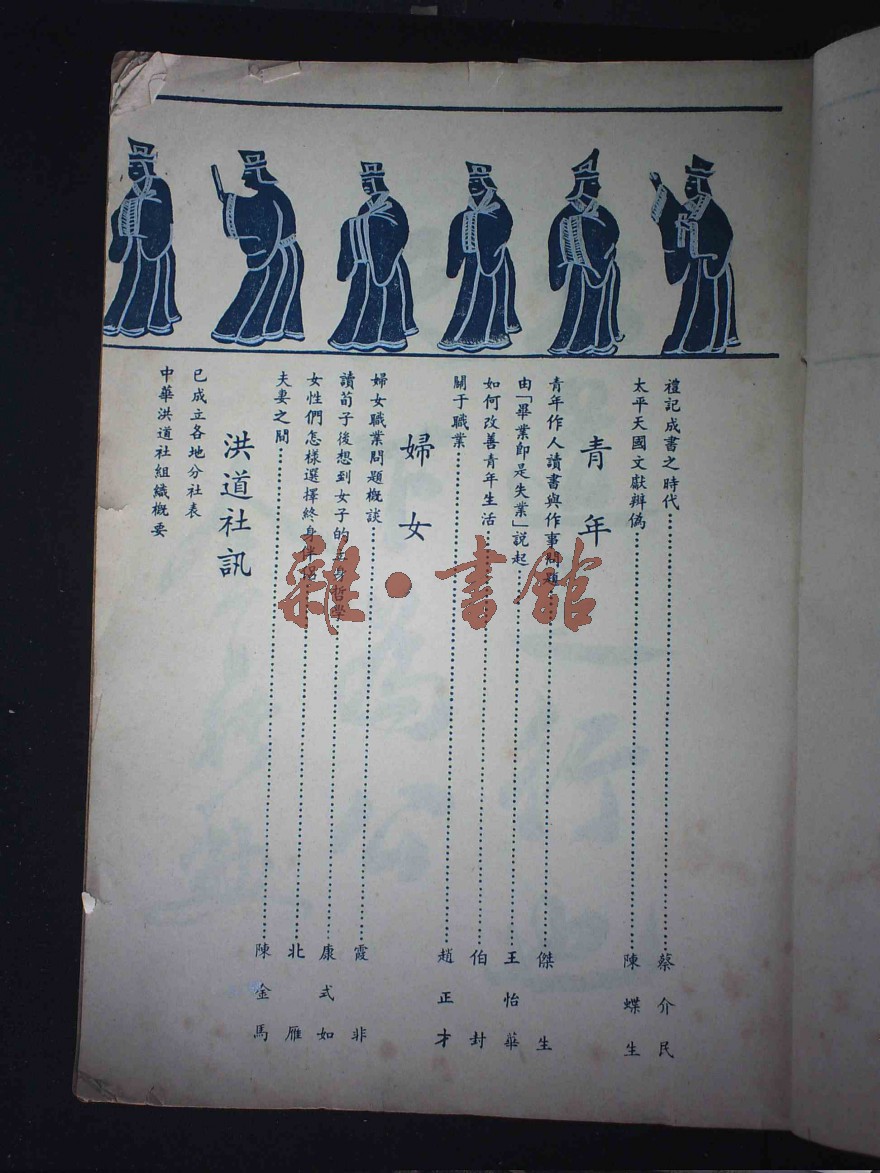 禮記成書之時代……蔡介民
太平天國文獻辯僞……陳蝶生
青年
青年作人讀書與作事問題……傑生
由「畢業即是失業」説起……王怡華
如何改善青年生活……伯封
關于職業……趙正才
婦女
婦女職業問題概談……霞非
讀荀子後想到女子的立身哲學……康式如
女性們怎樣選擇終身伴侶……北雁
夫妻之間……陳金馬
洪道社訊
已成立各地分社表
中華洪道社組織概要
雜·書館